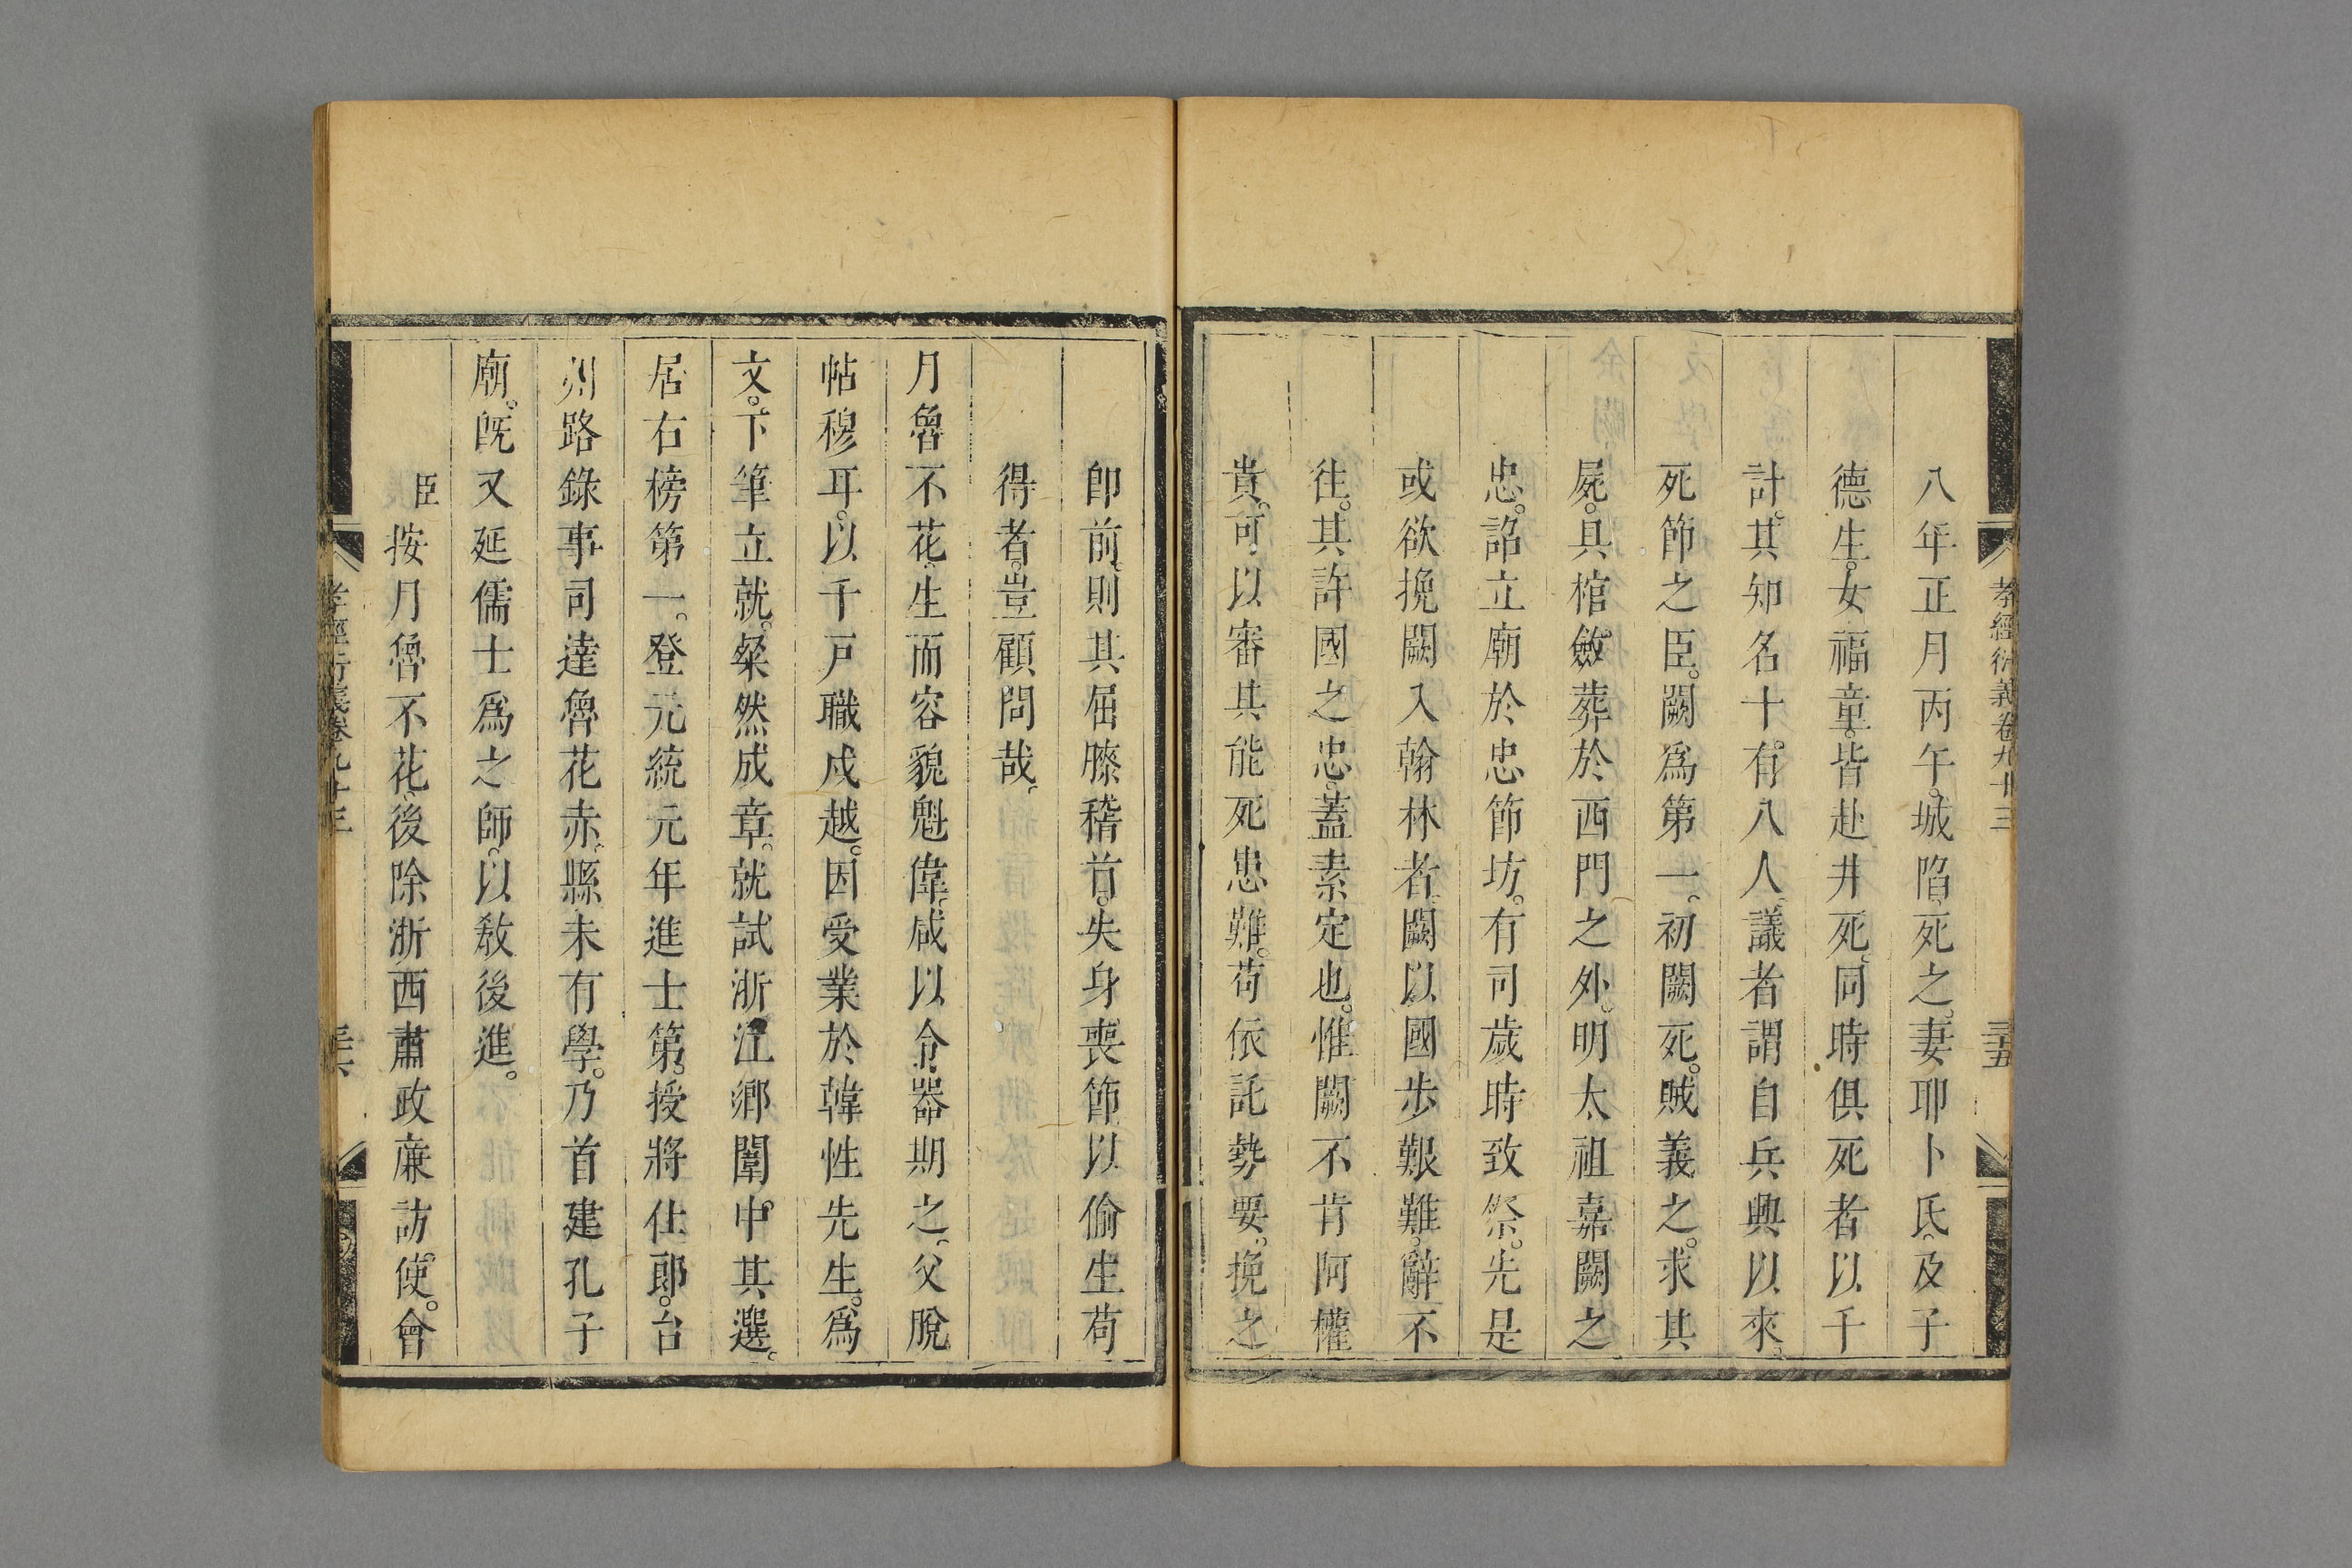 孝經衍義卷九十三
三十五
八年正月丙午。城陷、死之。妻耶卜氏、及子
德生。女福童。皆赴井死、同時俱死者以千
計。其知名十有八人、議者謂自兵興以來、
死節之臣。闕爲第一、初闕死。賊義之。求其
屍。具棺斂葬於西門之外。明太祖嘉闕之
忠。詔立廟於忠節坊。有司歲時致祭。先是
或欲挽闕入翰林者、闕以國步艱難。辭不
往。其許國之忠。蓋素定也。惟闕不肯阿權
貴。可以審其能死患難。苟依託勢要、挽之
卽前、則其屈膝稽首。失身喪節以偷生苟
得者。豈顧問哉、
月魯不花、生而容貌魁偉、咸以令器期之、父脫
帖穆耳。以千戶職戍越。因受業於韓性先生。爲
文。下筆立就。粲然成章。就試浙江鄉闈。中其選。
居右榜第一。登元統元年進士第。授將仕郞。台
州路錄事司達魯花赤、縣未有學。乃首建孔子
廟。旣又延儒士爲之師、以敎後進。
臣按月魯不花、後除浙西肅政廉訪使。會
孝經衍義卷九十三
三十六